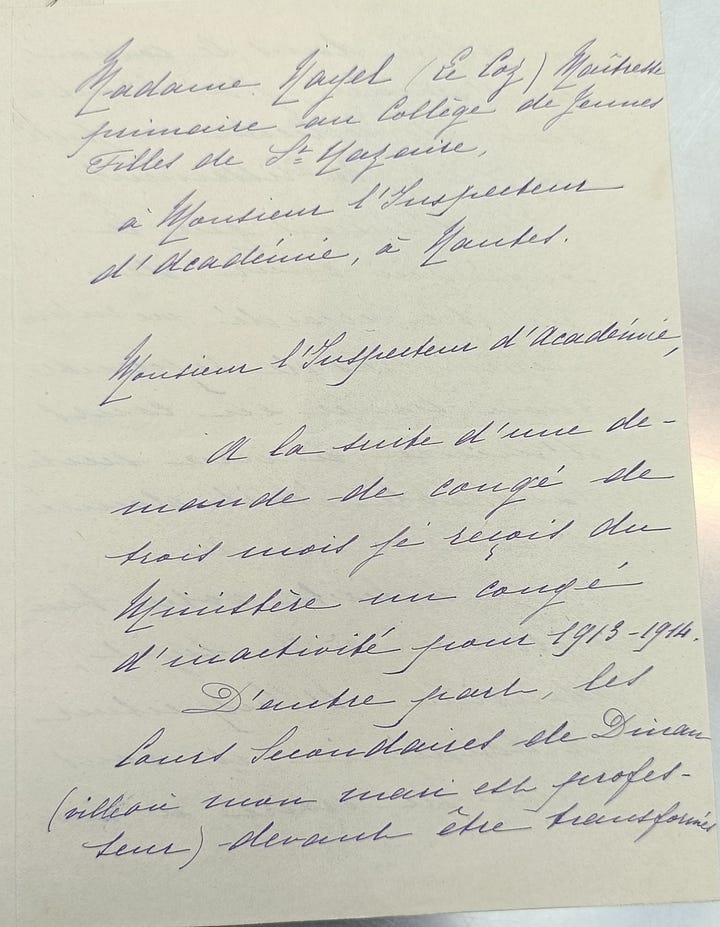 Madame Nayel (Le Coz) Maîtresse
primaire au Collège de Jeunes
Filles de St Nazaire,
à Monsieur l'Inspecteur
d'Académie, à Nantes.
Monsieur l'Inspecteur d'Académie,
A la suite d'une de-
mande de congé de
trois mois je reçois du
Ministère un congé
d'inactivité pour 1913-1914.
D'autre part, les
Cours Secondaires de Dinan
(ville où mon mari est profes-
seur) devant être transformés